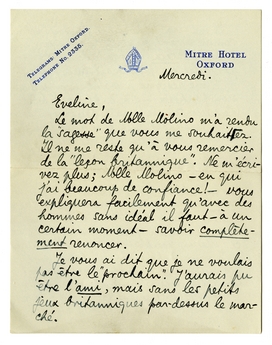 TELEGRAMS: MITRE OXFORD.
TELEPHONE No. 2335.
MITRE HOTEL
OXFORD
Mercredi.
Eveline,
Le mot de Molle Molino m'a rendu
la sagesse "que vous me souhaitez
"Il ne me reste qu'à vous remercier
de la "leçon Britannique". Ne m'écri-
vez plus; Molle Molino - en qui
j'ai beaucoup de confiance! - vous
expliquera facilement qu'avec des
hommes sans idéal il faut - à un
certain moment - savoir complète-
ment renoncer.
Je vous ai dit que je ne voulais
pas être le "prochain". J'aurais pu
être l'ami, mais sans les petits
jeux britanniques par-dessus le mar-
ché.